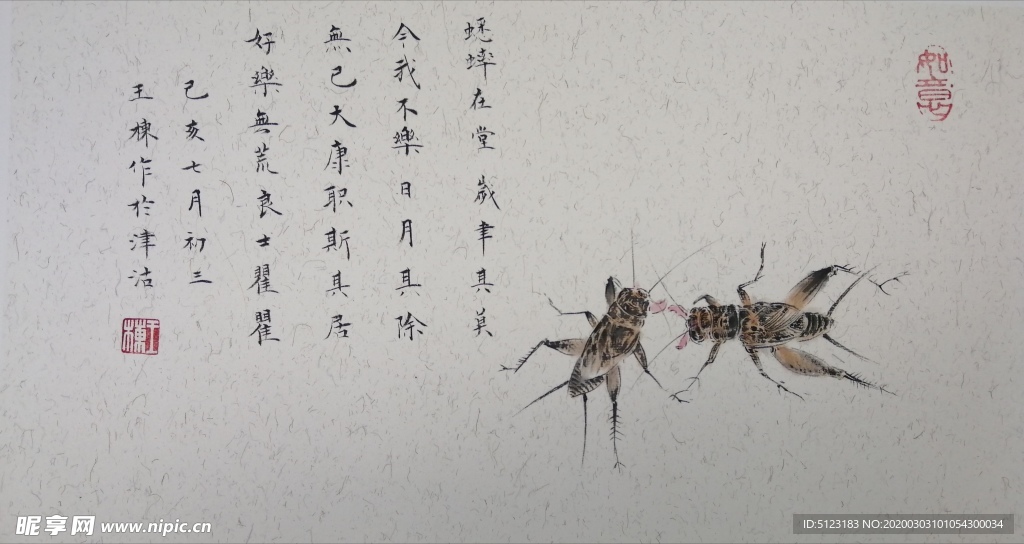 如意
蟋蟀在堂歲聿其莫
今我不樂日月其除
無已大康职斯其居
好樂無荒良士瞿瞿
己亥七月初三
王棟作於津沽
王棟
昵享网 www.nipic.cn
ID:5123183 NO:20200303101054300034